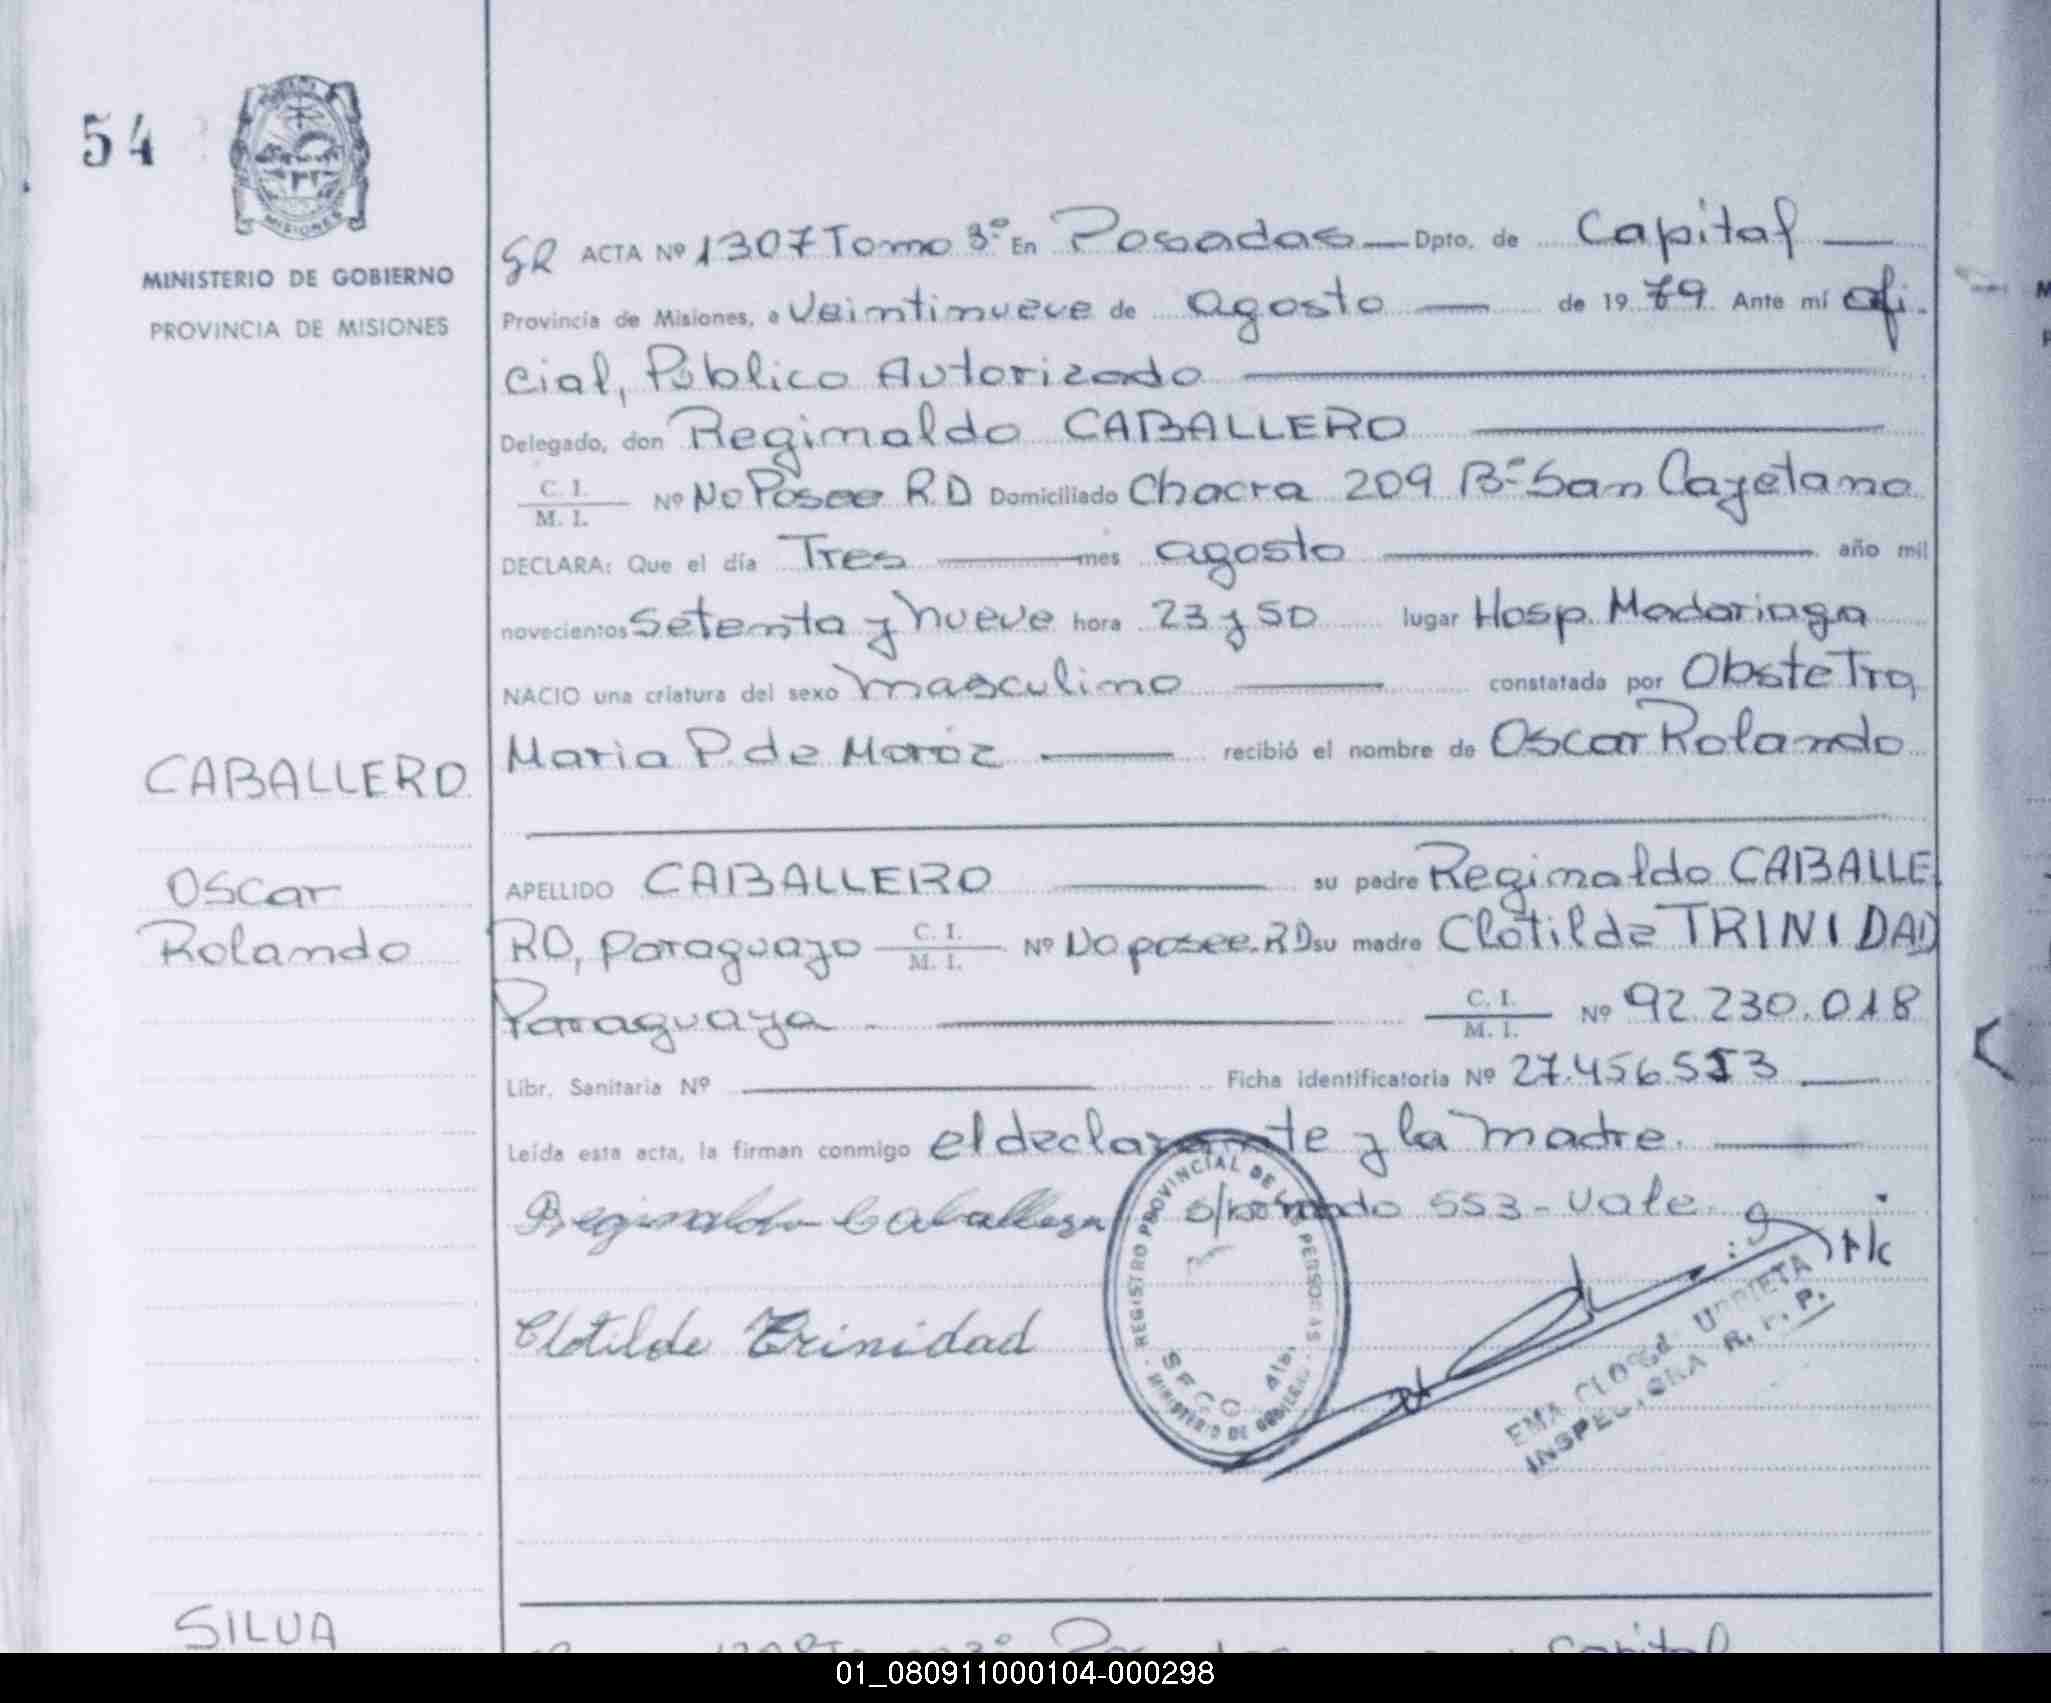 54
MISIONES
MINISTERIO DE GOBIERNO
PROVINCIA DE MISIONES
GR ACTA Nº 1307 Tomo 3º En Posadas Dpto. de Capital
Provincia de Misiones, a Veintinueve de agosto de 1979 Ante mí Ofi-
cial, Público Autorizado
Delegado, don Reginaldo CABALLERO
C. I.
M. I.
Nº No Posee R.D Domiciliado Chacra 209 Bº San Cayetano
DECLARA: Que el día Tres mes agosto año mil
novecientos Setenta y nueve hora 23 y 50 lugar Hosp. Madariaga
NACIO una criatura del sexo masculino constatada por Obstetra,
Maria P. de Moroz recibió el nombre de Oscar Rolando
CABALLERO
Oscar
Rolando
APELLIDO CABALLERO su padre Reginaldo CABALLE
RO, paraguayo C. I. M. I. Nº No posee.RD su madre Clotilde TRINIDAD
Paraguaya C. I. M. I. Nº 92.230.018
Libr. Sanitaria Nº Ficha identificatoria Nº 27.456.553
Leída esta acta, la firman conmigo el declarante y la madre.
Reginaldo Caballero 553 - vale.
Clotilde Trinidad
REGISTRO PROVINCIAL DE LAS PERSONAS
MINISTERIO DE GOBIERNO
EMA URRIETA
INSPECTORA R. P. P.
SILVA
Capital
01_080911000104-000298